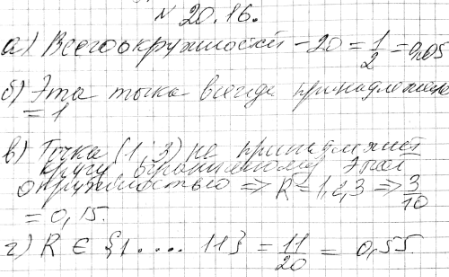 № 20.16.
а) Всего окружностей - 20 = 1/2 = 0,05
б) Эта точка всегда принадлежит
= 1
в) Точка (1; 3) не принадлежит
кругу ограниченому этой
окружностью => R = 1,2,3 => 3/10
= 0,15.
г) R ∈ {1 .... 11} = 11/20 = 0,55.